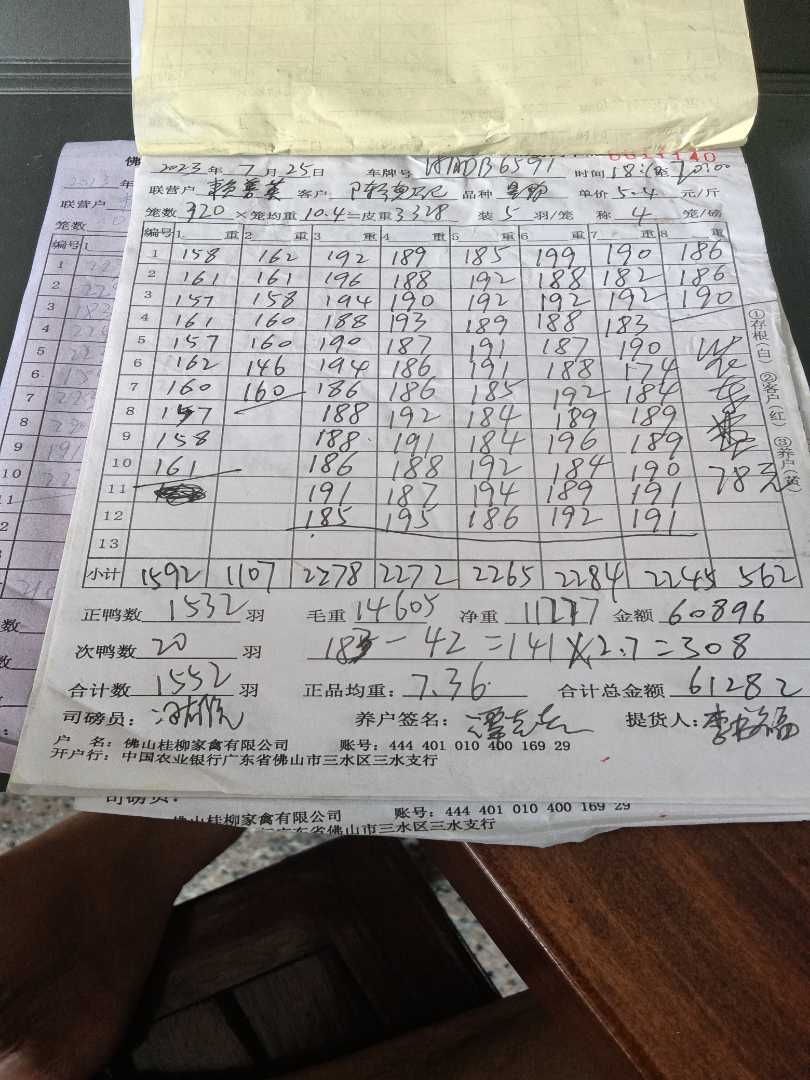 2023年 7月25日 车牌号 时间18:
联营户 客户 品种 单价5.4元/斤
笼数320×笼均重10.4=皮重3328 装5羽/笼 称4笼/磅
编号 1 重 2 重 3 重 4 重 5 重 6 重 7 重 8 重
1 158 162 192 189 185 199 190 186
2 161 161 196 188 192 188 182 186
3 157 158 194 190 192 192 192 190
4 161 160 188 193 189 188 183
5 157 160 190 187 191 187 190
6 162 146 194 186 191 188 174
7 160 160 186 186 185 192 184
8 157 188 192 184 189 189
9 158 188 191 184 196 189
10 161 186 188 192 184 190 78元
11 191 187 194 189 191
12 185 195 186 192 191
13
小计 1592 1107 2278 2272 2265 2284 2245 562
①存根(白) ②客户(红) ③养户(黄)
正鸭数1532羽 毛重14605 净重 金额60896
次鸭数20羽 183-42=141×2.7=308
合计数1552羽 正品均重:7.36 合计总金额61282
司磅员: 养户签名: 提货人:
户 名:佛山桂柳家禽有限公司 账号:444 401 010 400 169 29
开户行:中国农业银行广东省佛山市三水区三水支行
司磅员:
佛山桂柳家禽有限公司 账号:444 401 010 400 169 29
广东省佛山市三水区三水支行